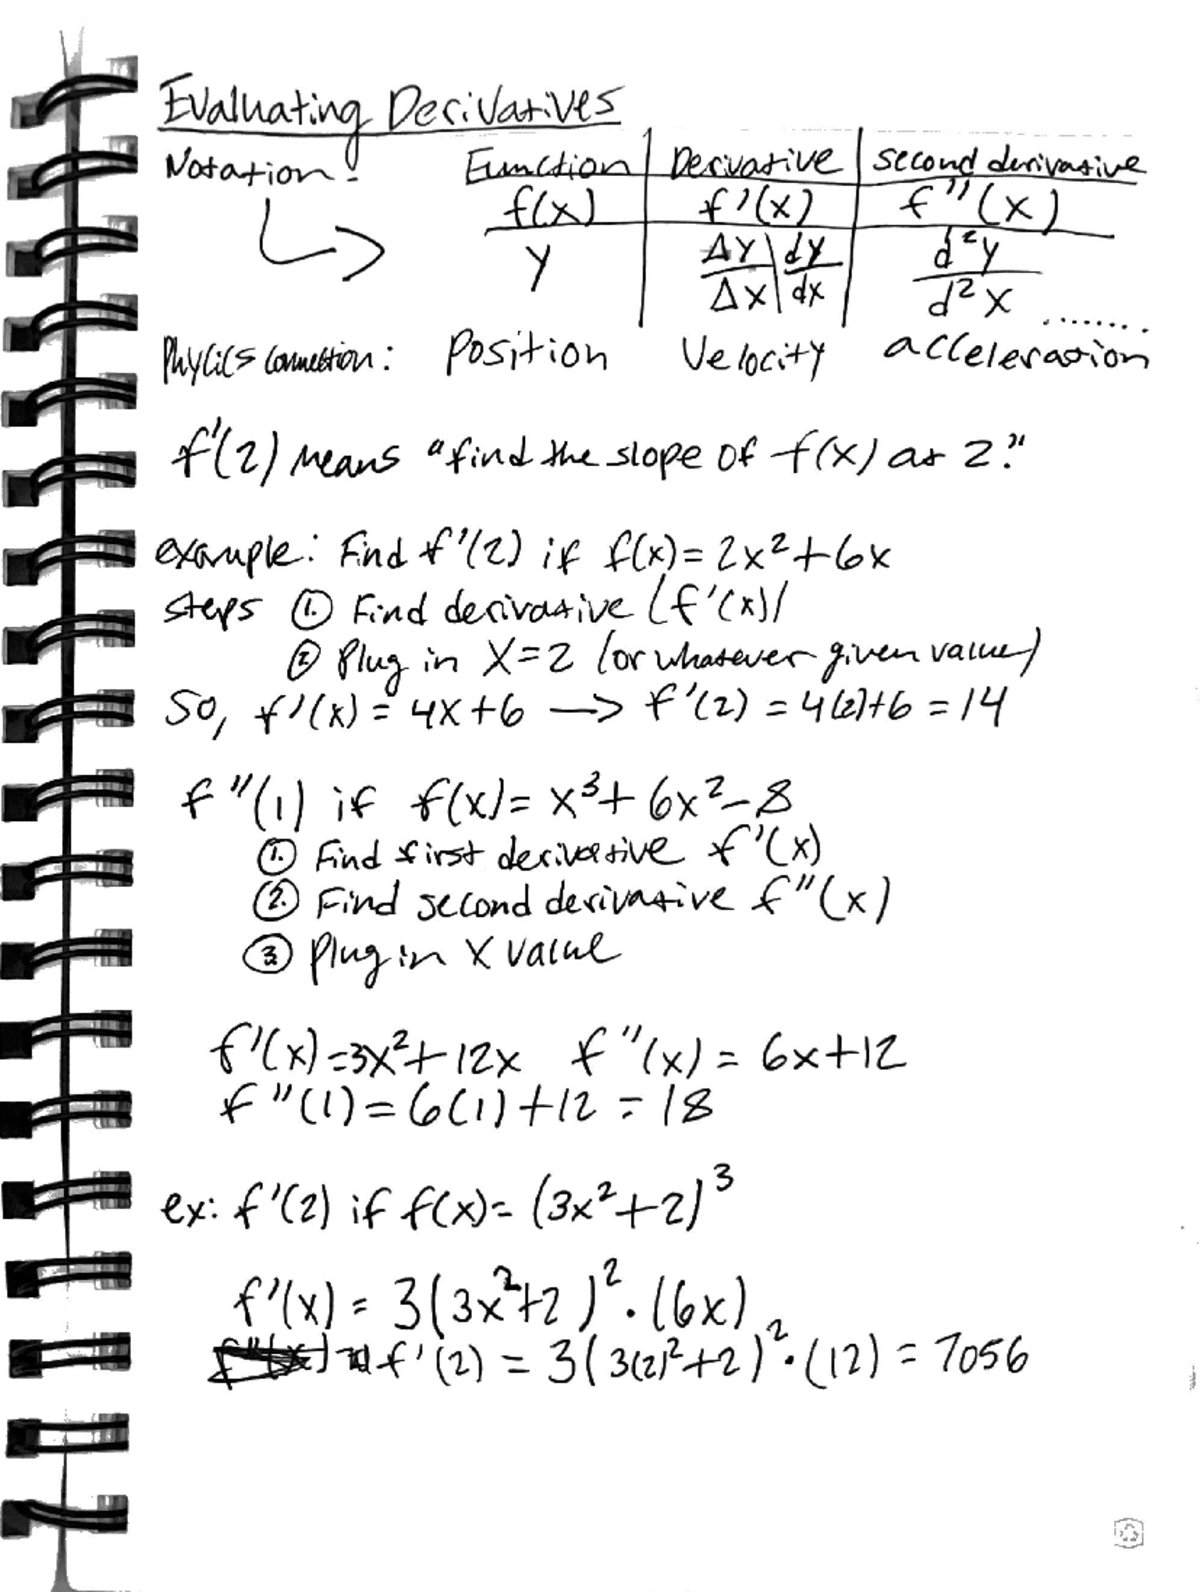 Evaluating Derivatives
Notation: Function | Derivative | Second derivative
f(x) f'(x) f''(x)
y Δy/Δx | dy/dx d²y/d²x ........
Physics connection: Position Velocity acceleration
f'(2) means "find the slope of f(x) at 2."
example: Find f'(2) if f(x) = 2x²+6x
steps ①. Find derivative (f'(x))
② Plug in x=2 (or whatever given value)
So, f'(x) = 4x+6 → f'(2) = 4(2)+6 = 14
f''(1) if f(x) = x³+6x²-8
①. Find first derivative f'(x)
②. Find second derivative f''(x)
③ Plug in x value
f'(x)=3x²+12x f''(x) = 6x+12
f''(1) = 6(1)+12 = 18
ex: f'(2) if f(x)= (3x²+2)³
f'(x) = 3(3x²+2)²·(6x)
f'(2) = 3(3(2)²+2)²·(12) = 7056